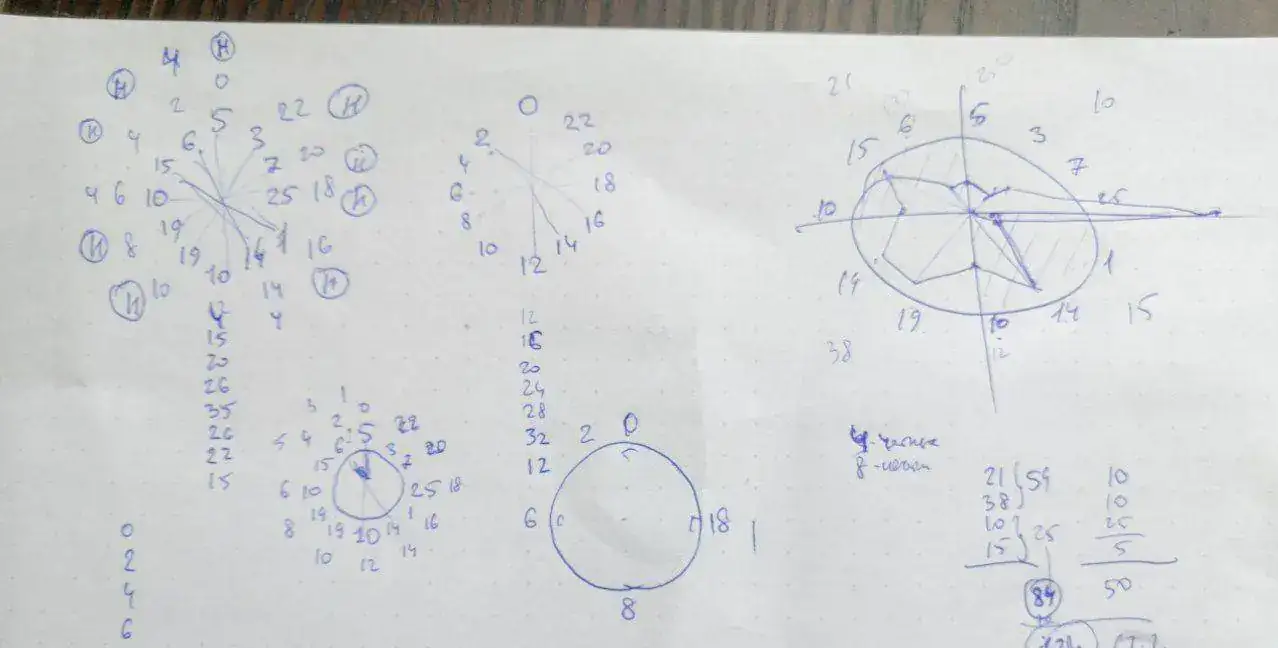 Н
4 0
Н 2 5 22 Н
Н 4 6 3 20 Н
15 7
4 6 10 25 18 Н
19 1
Н 8 19 14 16
Н 10 10 14 Н
4
15
20
26
35
26
22
15
0
2
4
6
0
2 22
4 20
6 18
8 16
10 14
12
12
16
20
24
28
32
12
1
3 0
2
5 4 6 5 22
15 3 20
7
6 10 25 18
19 1
8 19 10 14 16
10 12 14
0
2
6 18
8
21 10
6 5 3
15 7
10 25
19 1
19 10 14 15
38 12
21 54 10
38 10
10 25 25
15 5
84 50